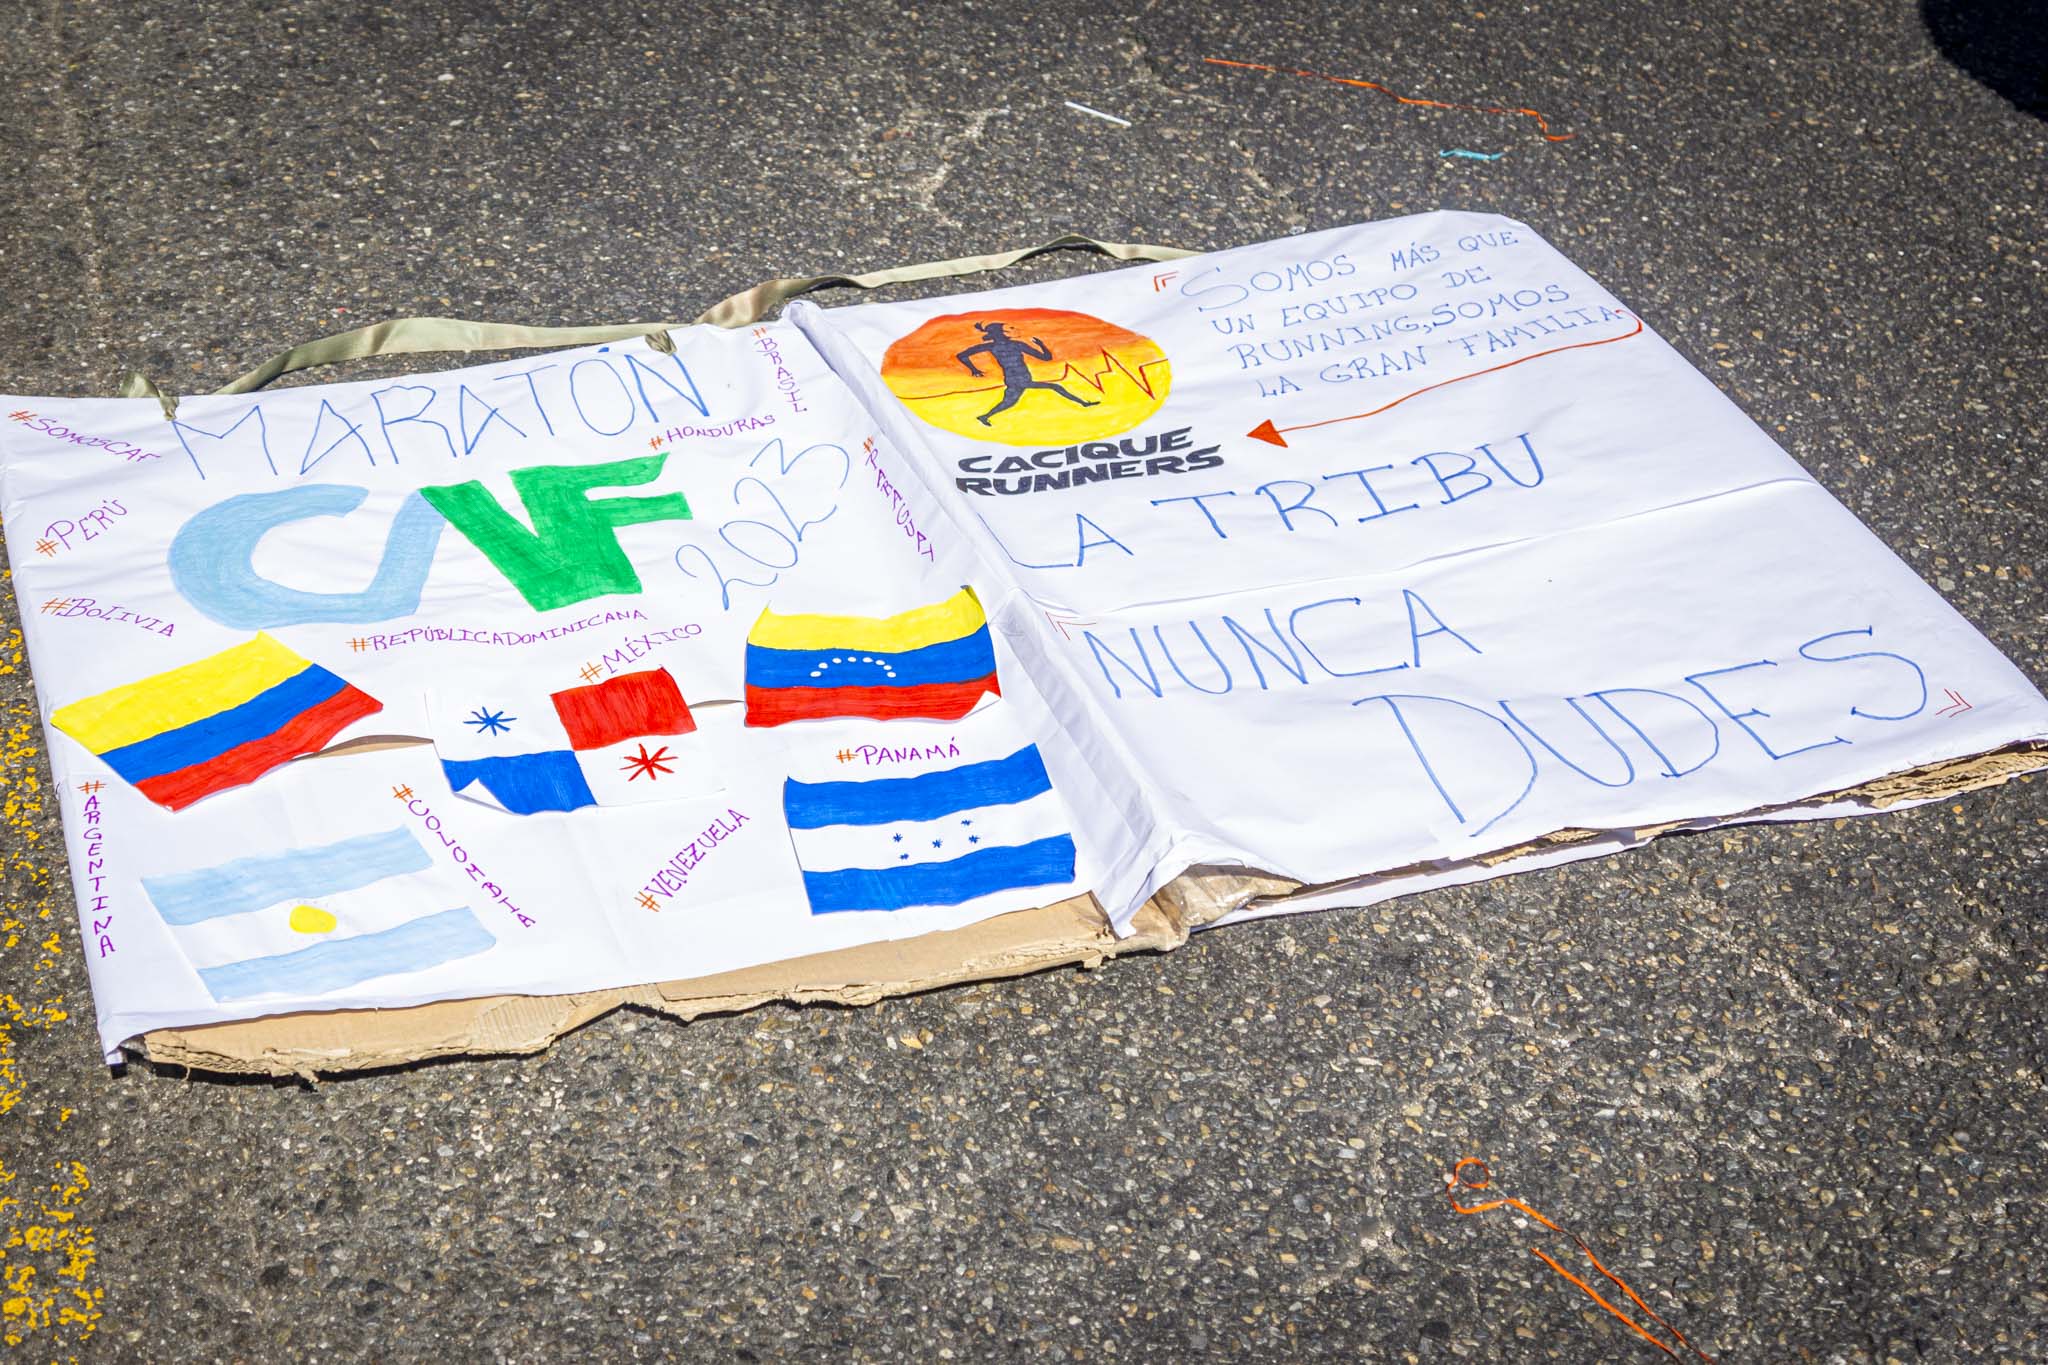 #SOMOSCAF
MARATÓN
#BRASIL
#HONDURAS
#PERÚ
CAF
2023
#PARAGUAY
#BOLIVIA
#REPÚBLICADOMINICANA
#MÉXICO
#PANAMÁ
#ARGENTINA
#COLOMBIA
#VENEZUELA
SOMOS MÁS QUE
UN EQUIPO DE
RUNNING, SOMOS
LA GRAN FAMILIA
CACIQUE
RUNNERS
LA TRIBU
NUNCA
DUDES